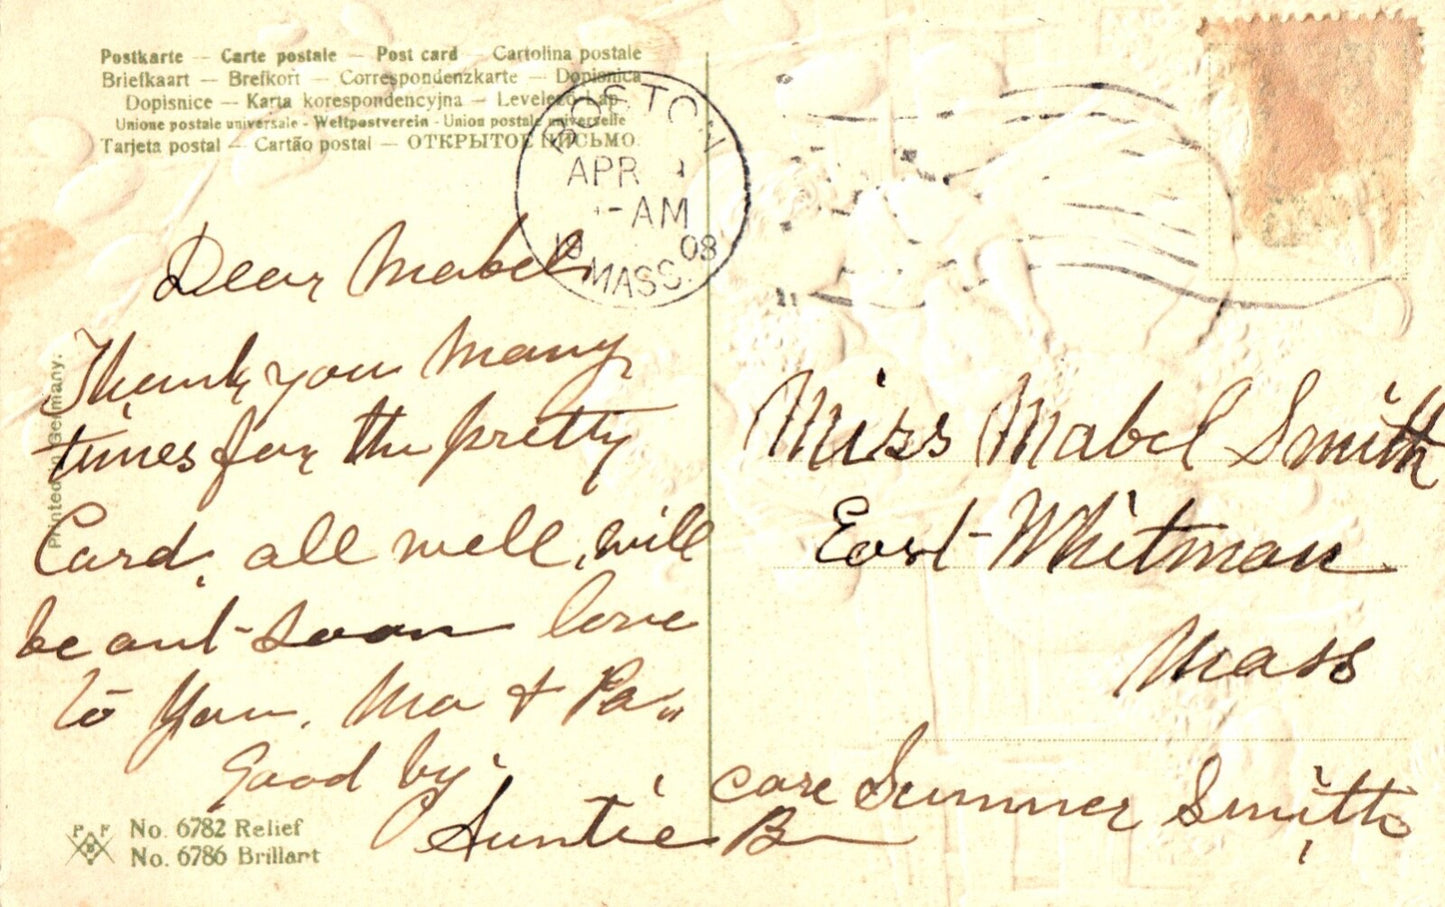 Postkarte — Carte postale — Post card — Cartolina postale
Briefkaart — Brefkort — Correspondenzkarte — Dopisnica
Dopisnice — Karta korespondencyjna — Levelező-Lap
Unione postale universale - Weltpostverein - Union postale universelle
Tarjeta postal — Cartão postal — ОТКРЫТОЕ ПИСЬМО.
BOSTON
APR
-AM
19 08
MASS.
Dear Mabel
Thank you many
times for the pretty
Card, all well, will
be out soon love
to You. Ma + Pa
Good by.
Auntie B
Printed in Germany.
P F B
No. 6782 Relief
No. 6786 Brillant
Miss Mabel Smith
East Whitman
Mass
care Sumner Smith